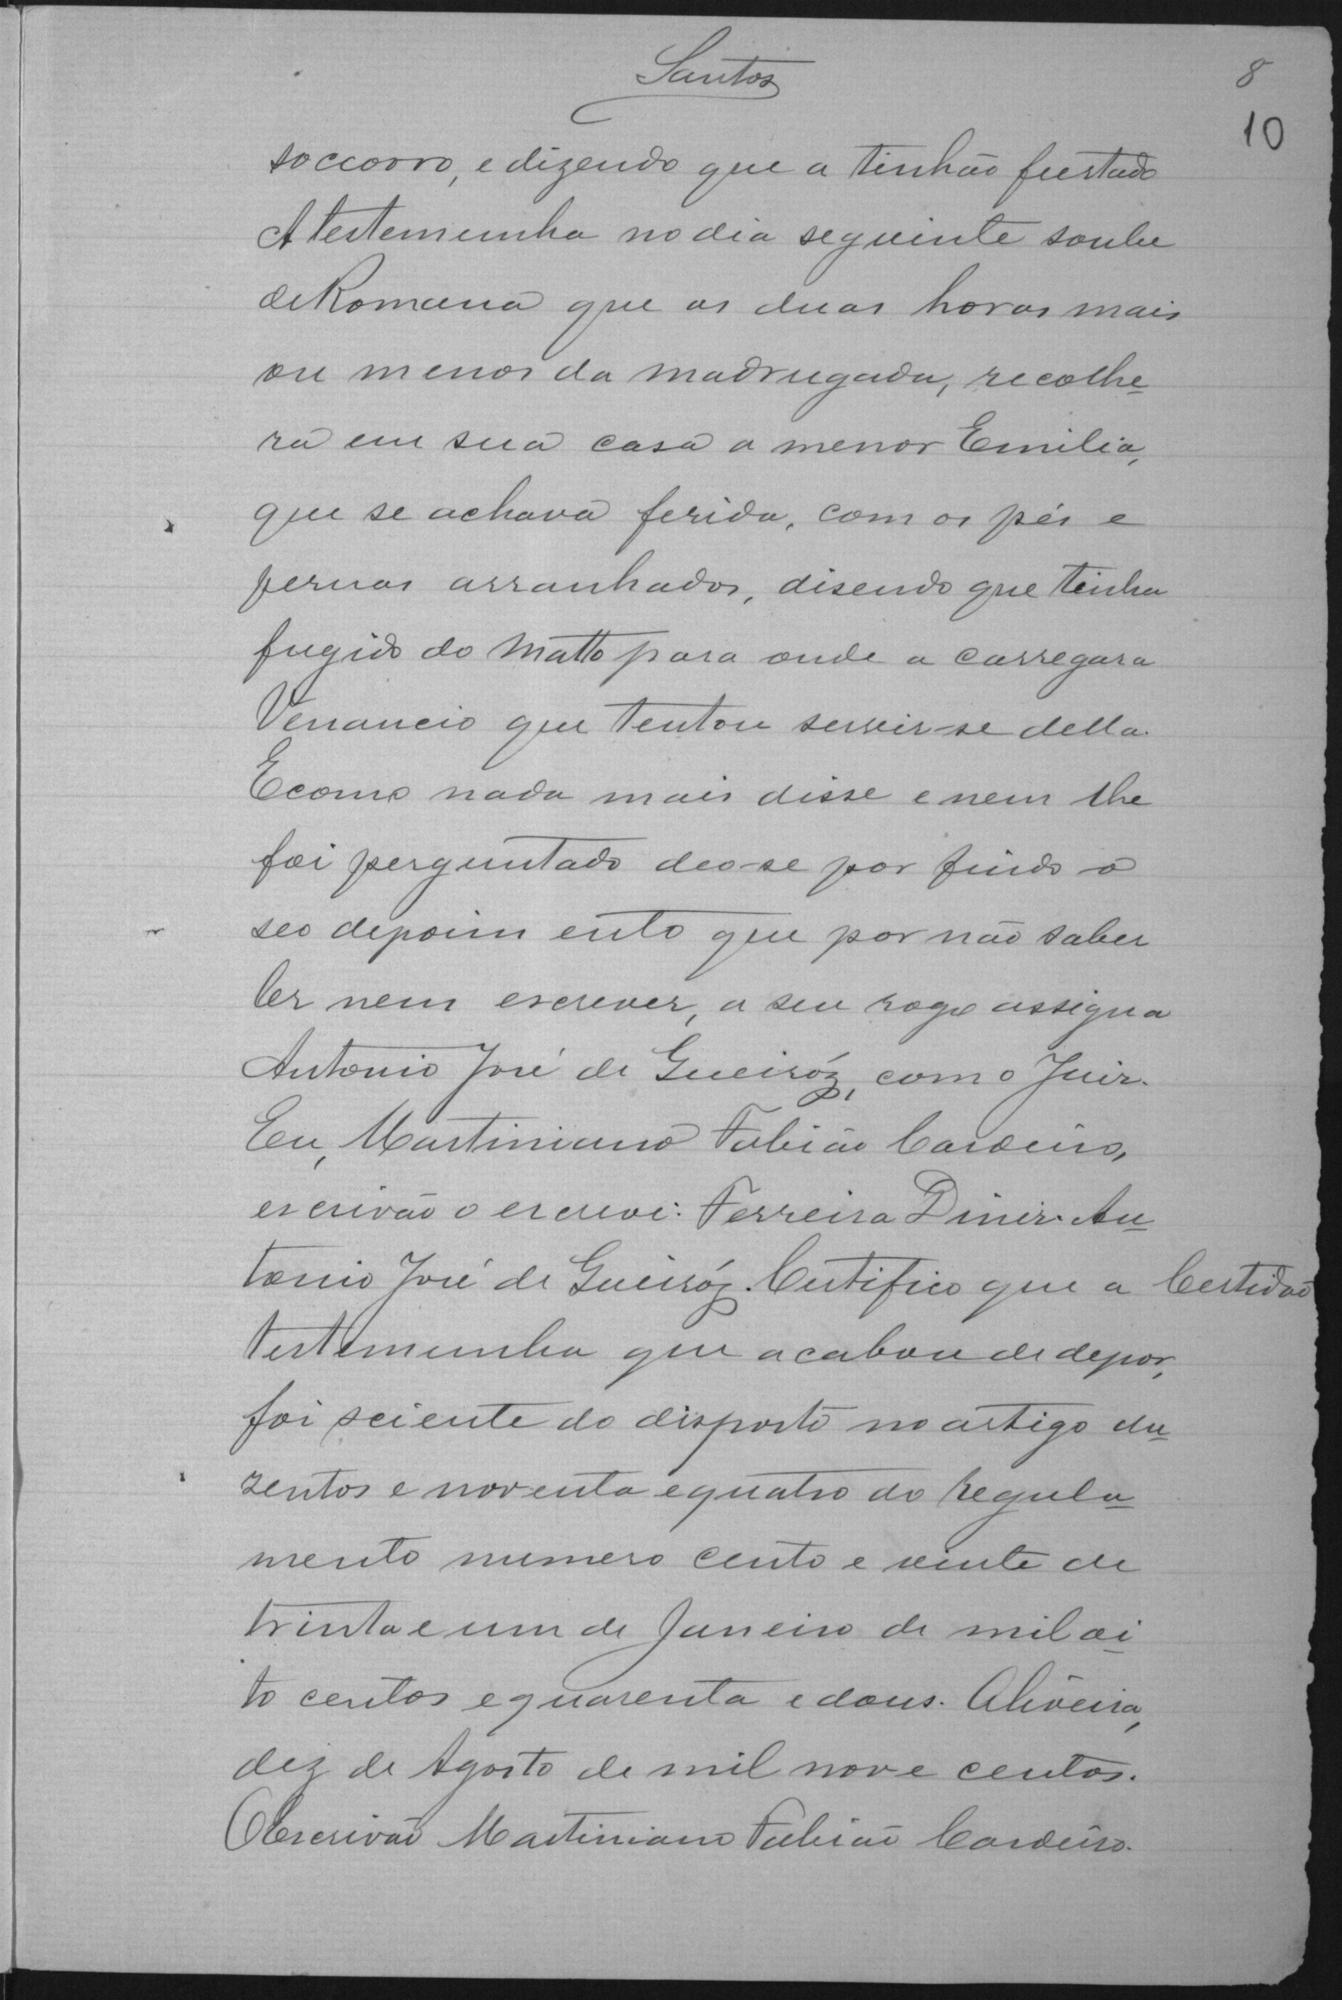 Santos
8
10
soccorro, e dizendo que a tinhão furtado
A testemunha no dia seguinte soube
de Romana que as duas horas mais
ou menos da madrugada, recolhe-
ra em sua casa a menor Emilia,
que se achava ferida, com os pés e
pernas arranhados, disendo que tinha
fugido do matto para onde a carregara
Venancio que tentou servir-se della.
E como nada mais disse e nem lhe
foi perguntado deo-se por findo o
seo depoimento que por não saber
ler nem escrever, a seu rogo assigna
Antonio José de Gueiróz, com o Juiz.
Eu, Martiniano Fabião Cordeiro,
escrivão o escrevi: Ferreira Diniz. An-
tonio José de Gueiróz. Certifico que a Certidão
testemunha que acabou de depor,
foi sciente do disposto no artigo du-
zentos e noventa e quatro do regula-
mento numero cento e vinte de
trinta e um de Janeiro de mil oi-
to centos e quarenta e dous. Oliveira,
dez de Agosto de mil nove centos.
O Escrivão Martiniano Fabião Cordeiro.